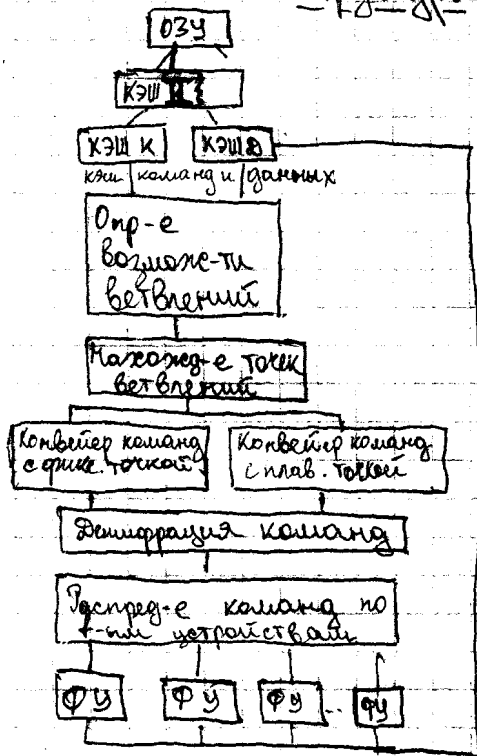 ОЗУ
КЭШ II
КЭШ К КЭШ Д
кэш команд и данных
Опр-е
возможс-ти
ветвлений
Нахожд-е точек
ветвлений
Конвейер команд
с фикс. точкой
Конвейер команд
с плав. точкой
Дешифрация команд
Распред-е команд по
f-ым устройствам
ФУ ФУ ФУ ... ФУ